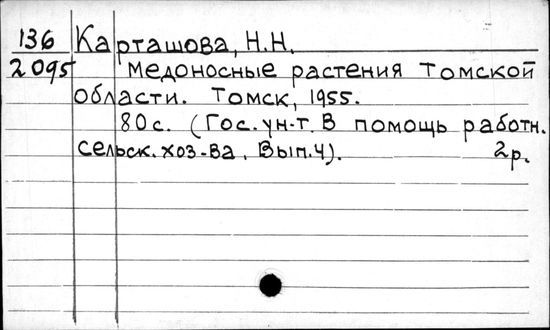 136 Карташова, Н.Н.
2095 Медоносные растения Томской
области. Томск, 1955.
80с. (Гос. ун-т. В помощь работн.
сельск. хоз-ва. Вып.4).
2р.